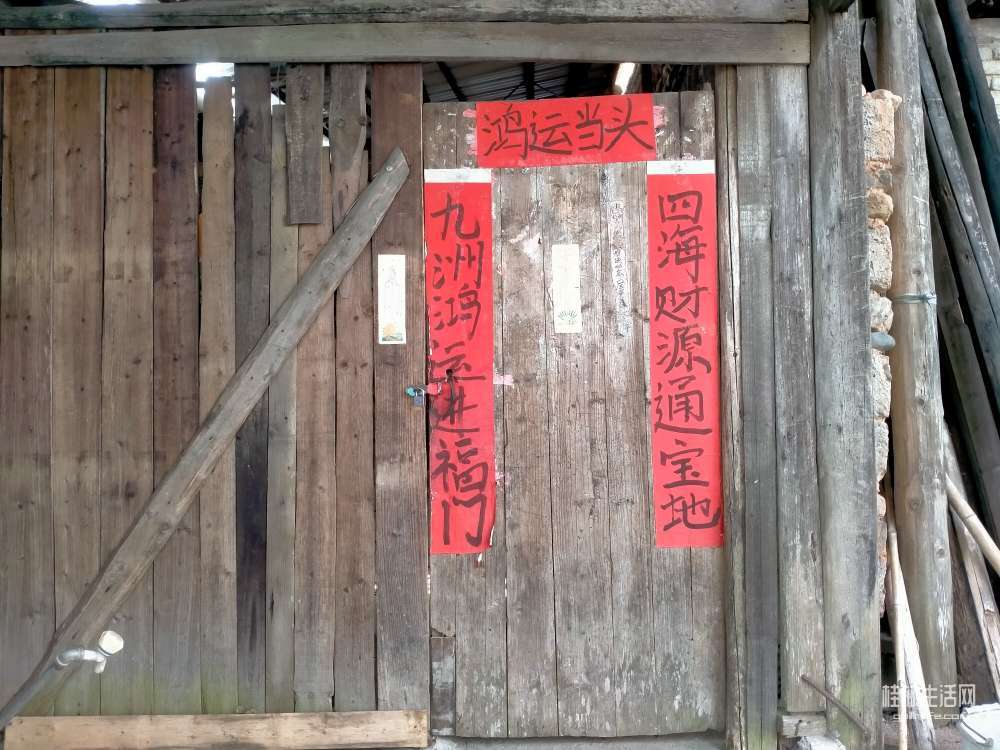 鸿运当头
四海财源通宝地
九洲鸿运进福门
桂林生活网